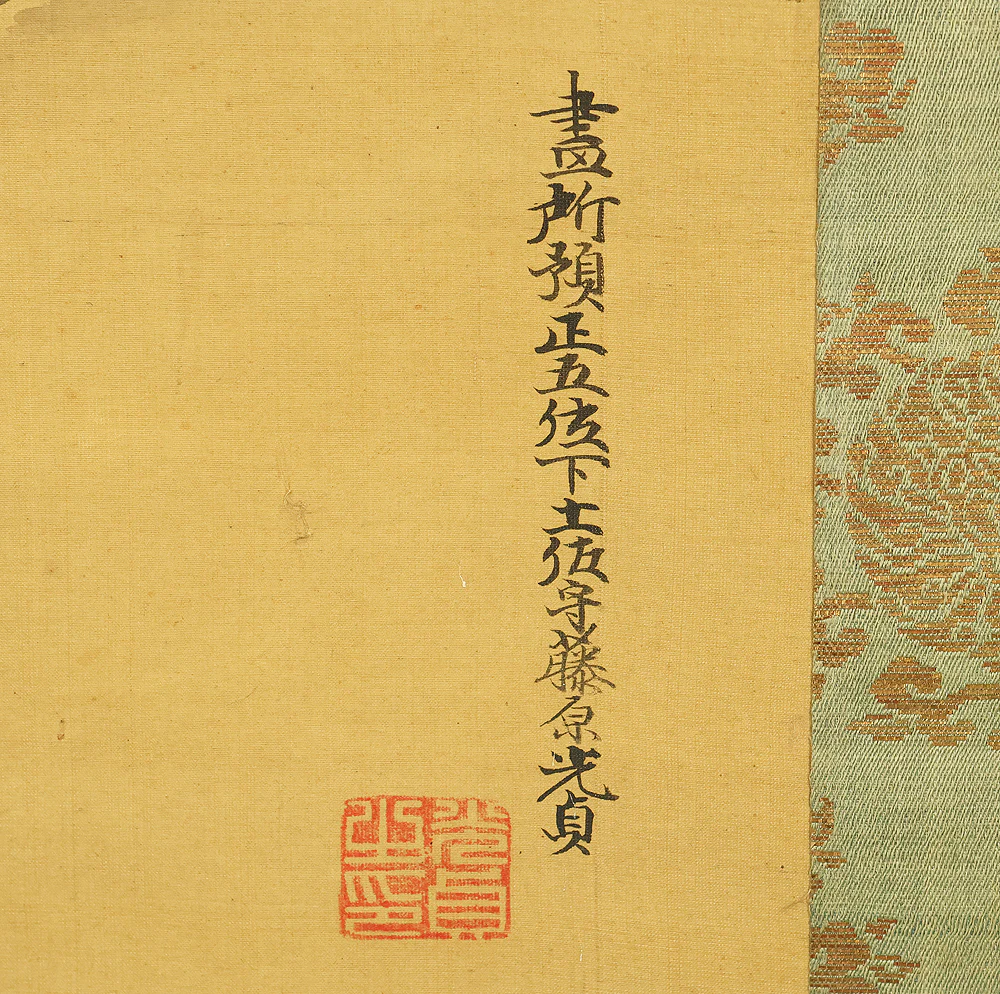 畫所預正五位下土佐守藤原光貞
光貞